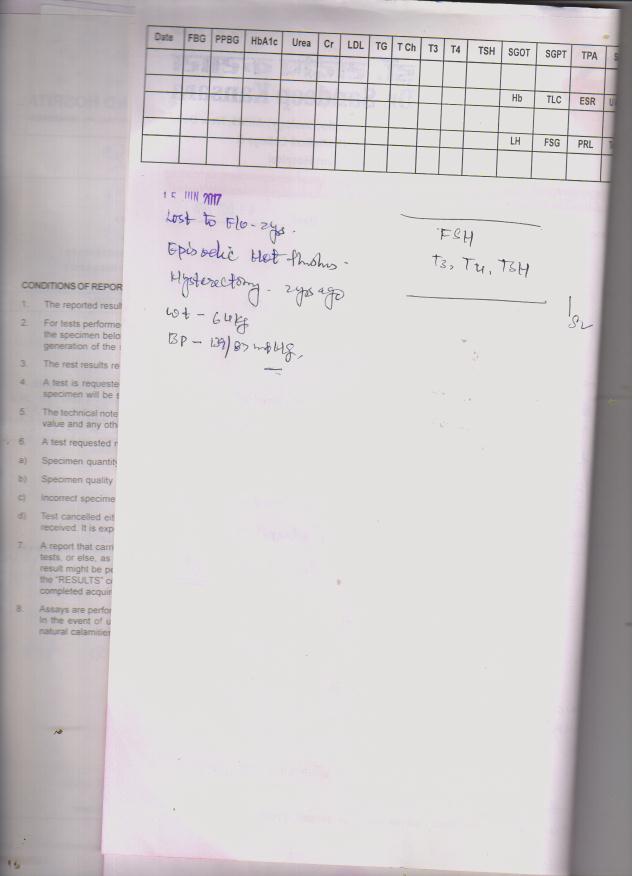 Date FBG PPBG HbA1c Urea Cr LDL TG T Ch T3 T4 TSH SGOT SGPT TPA
Hb TLC ESR
LH FSG PRL
2017
Lost to F/o - 2yrs.
Episodic Hot flushes.
Hysterectomy - 2yrs ago
wt - 64kg
BP - mmHg,
FSH
T3, T4, TSH
CONDITIONS OF REPOR
1. The reported resul
2. For tests performe
the specimen belo
generation of the
3. The rest results re
4. A test is requeste
specimen will be
5. The technical note
value and any oth
6. A test requested
a) Specimen quantity
b) Specimen quality
c) Incorrect specime
d) Test cancelled eit
received. It is exp
7. A report that carri
tests, or else, as
result might be pe
the "RESULTS"
completed acquir
8. Assays are perfor
In the event of u
natural calamitie